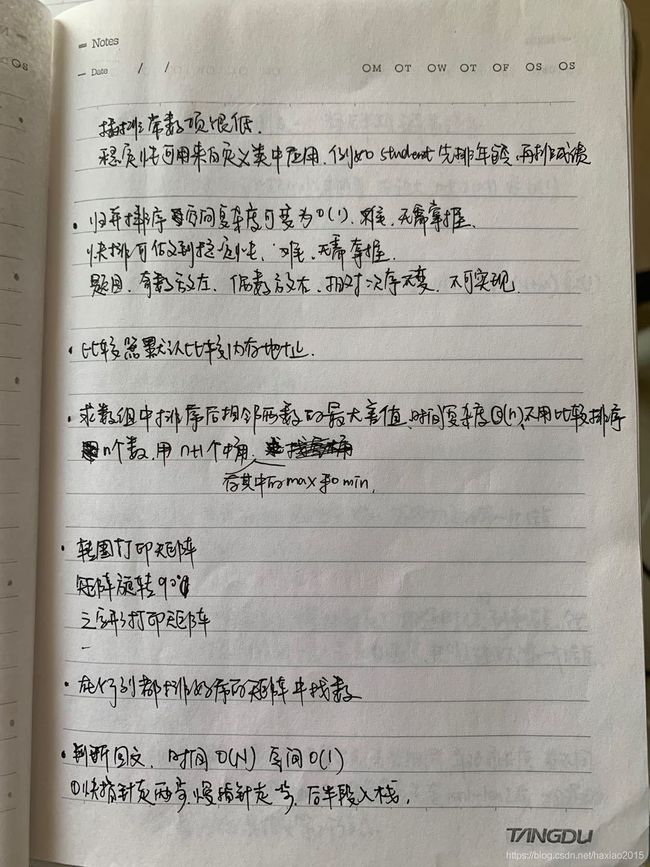 Notes
Date / / OM OT OW OT OF OS OS
插排常数项很低.
稳定性可用来自定义类中应用.例如 student 先排年龄,再排成绩
· 归并排序 空间复杂度可变为 O(1). 难,无需掌握.
快排可做到稳定性, 难,无需掌握.
题目.奇数放左.偶数放右.相对次序不变.不可实现.
· 比较器默认比较内存地址.
· 求数组中排序后相邻两数的最大差值.时间复杂度O(n),不用比较排序
n个数.用 n+1 个桶.
存其中的max和min,
· 转圈打印矩阵
矩阵旋转90°
之字形打印矩阵
· 在行列都排好序的矩阵中找数
· 判断回文. 时间 O(N) 空间 O(1)
①快指针走两步,慢指针走一步, 后半段入栈,
TANGDU
https://blog.csdn.net/haxiao2015